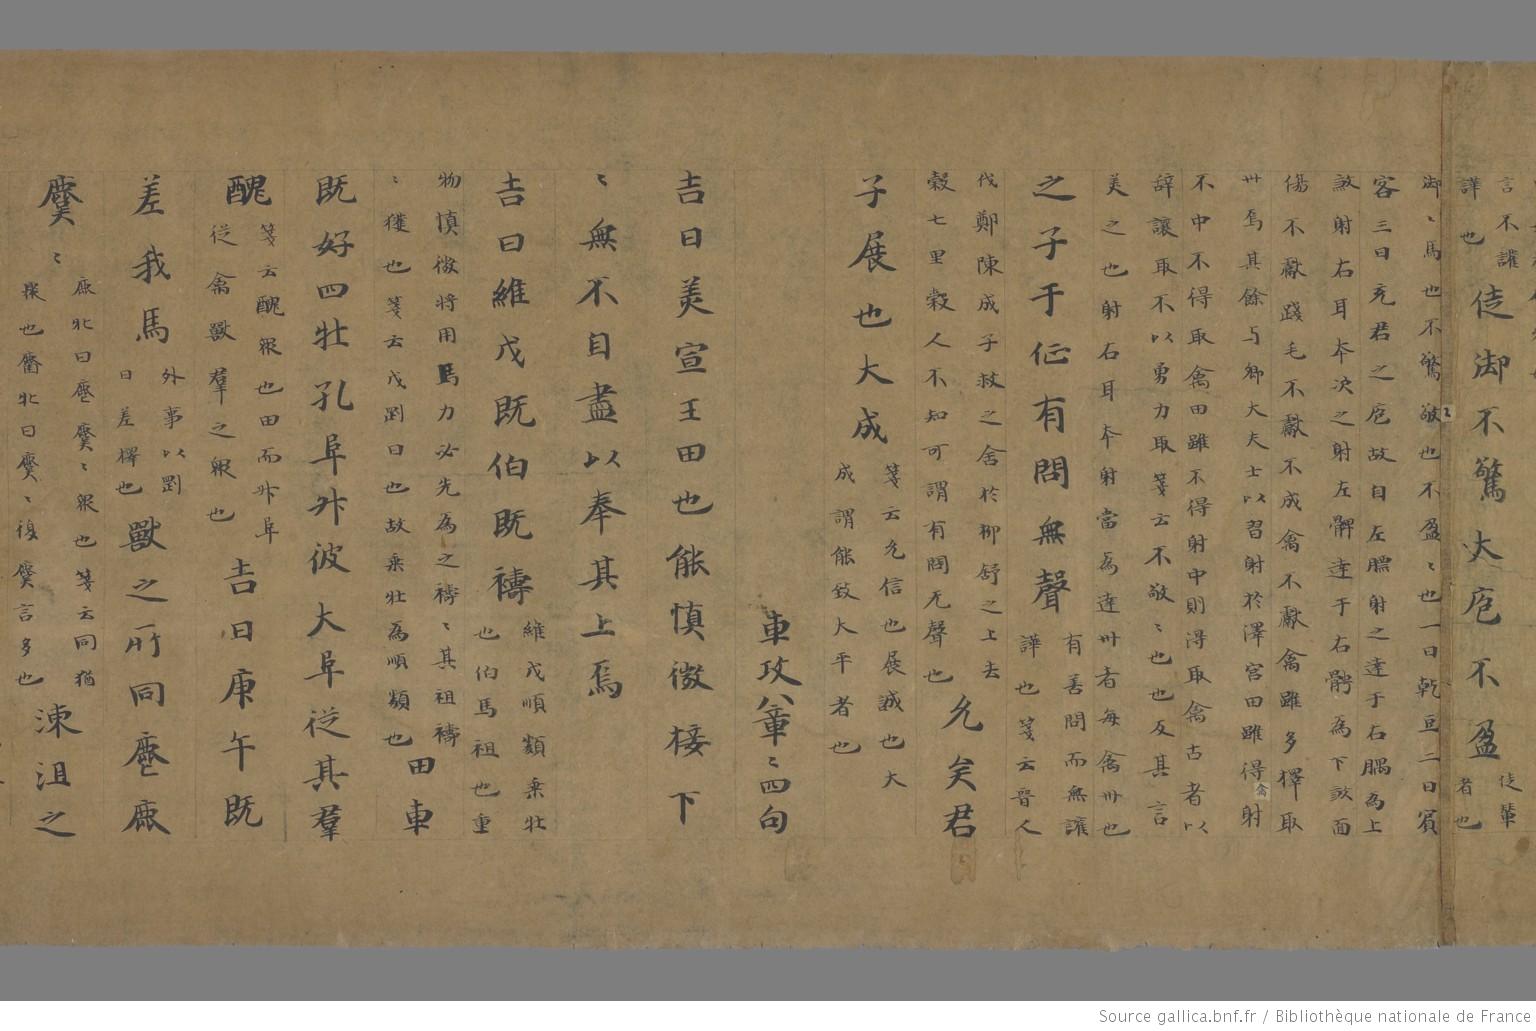 言不讙
譁也
徒御不驚大庖不盈
徒輦
者也
御〻馬也不驚〻也不盈〻也一曰乾豆二曰賓
客三曰充君之庖故自左膘射之達于右腢為上
煞射右耳夲次之射左髀達于右䯚為下煞面
傷不獻踐毛不獻不成禽不獻禽雖多擇取
卅焉其餘与卿大夫士以習射於澤宮田雖得禽射
不中不得取禽田雖不得射中則得取禽古者以
辞讓取不以勇力取箋云不敬〻也也反其言
美之也射右耳夲射當為達卅者每禽卅也
之子于征有問無聲
有善問而無讙
譁也箋云晉人
伐鄭陳成子救之舍於柳舒之上去
穀七里穀人不知可謂有問无聲也
允矣君
子展也大成
箋云允信也展誠也大
成謂能致大平者也
車攻八章〻四句
吉日美宣王田也能慎微接下
〻無不自盡以奉其上焉
吉日維戊既伯既禱
維戊順類乘牡
也伯馬祖也重
物慎微將用馬力必先為之禱〻其祖禱
〻獲也箋云戊剛日也故乘牡為順類也
田車
既好四牡孔阜升彼大阜從其羣
醜
箋云醜衆也田而升阜
從禽獸羣之衆也
吉日庚午既
差我馬
外事以剛
日差擇也
獸之所同麀鹿
麌〻
鹿牝曰麀麌〻衆也箋云同猶
聚也麕牝曰麌〻復麌言多也
漆沮之